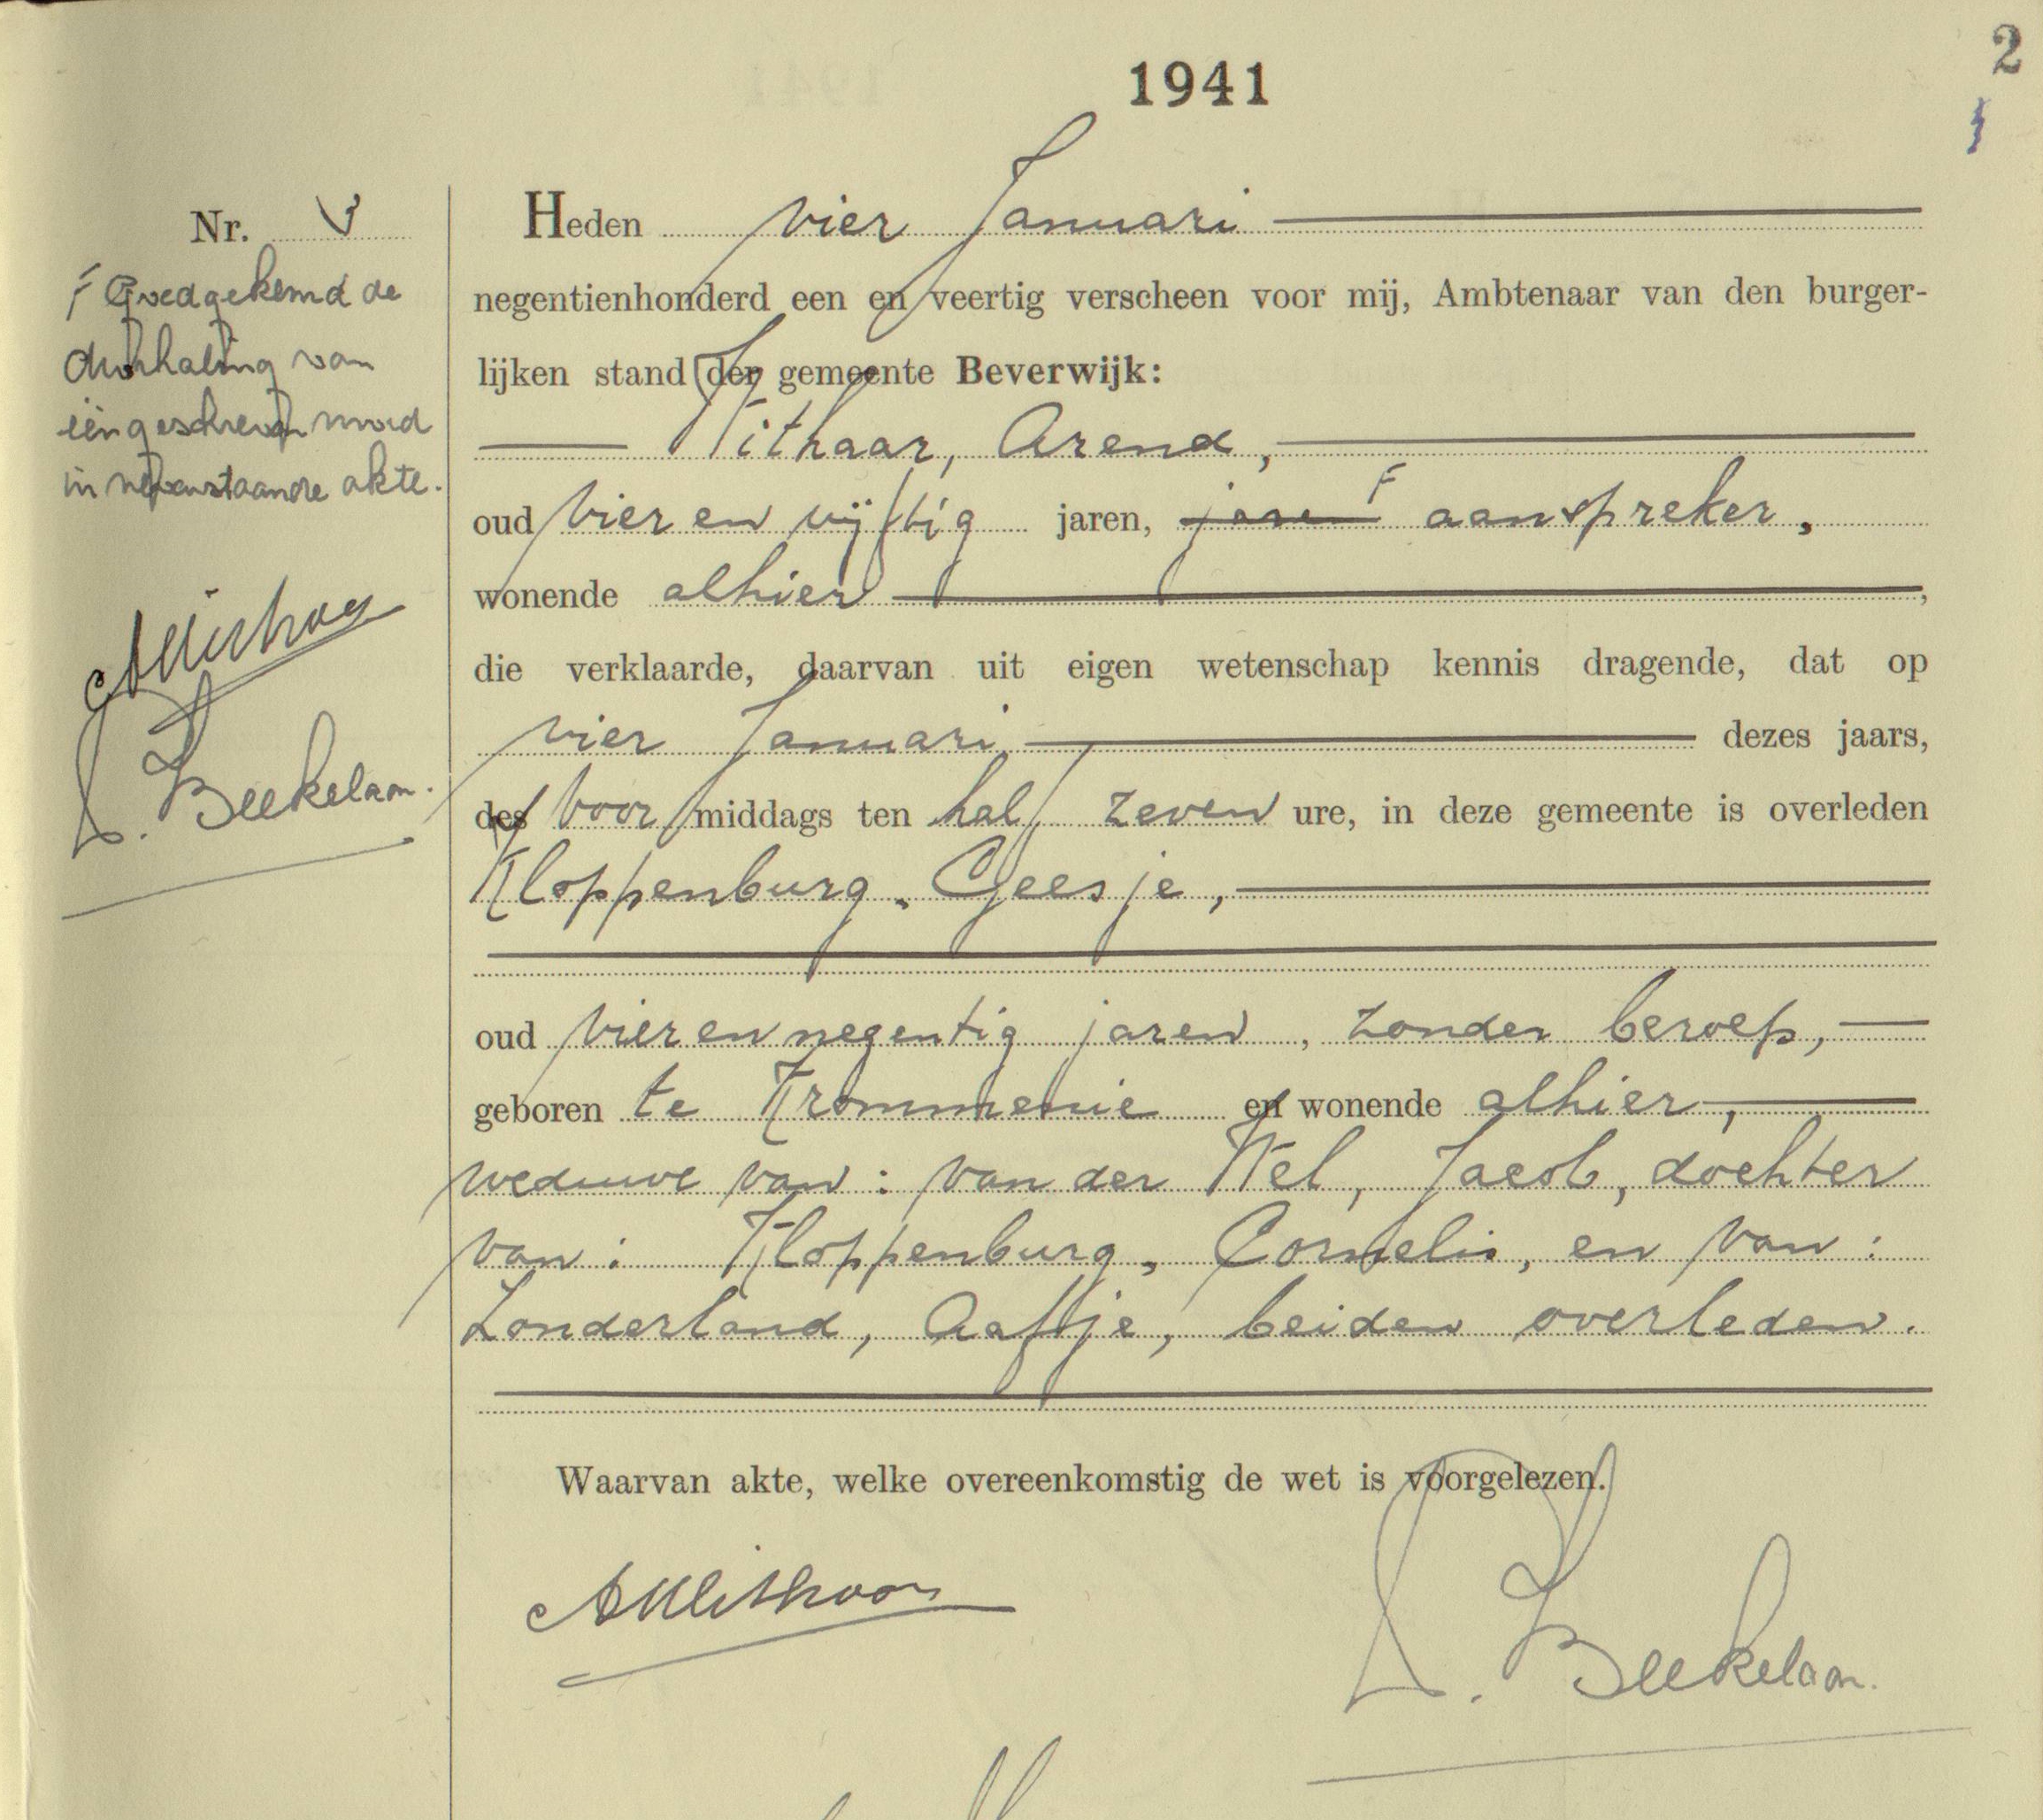 1941
2
Nr. 3
Heden vier Januari
negentienhonderd een en veertig verscheen voor mij, Ambtenaar van den burger-
lijken stand der gemeente Beverwijk:
Withaar, Arend,
oud vier en vijftig jaren, jaren F aanspreker,
wonende alhier,
die verklaarde, daarvan uit eigen wetenschap kennis dragende, dat op
vier Januari dezes jaars,
des voor middags ten half zeven ure, in deze gemeente is overleden
Kloppenburg, Geesje,
oud vier en negentig jaren, zonder beroep,
geboren te Krommenie en wonende alhier,
weduwe van: van der Wel, Jacob, dochter
van: Kloppenburg, Cornelis, en van:
Zonderland, Aaftje, beiden overleden.
Waarvan akte, welke overeenkomstig de wet is voorgelezen.
AWithaar
Beekelaar.
F Goedgekeurd de
doorhaling van
één geschreven woord
in nevenstaande akte.
AWithaar
Beekelaar.